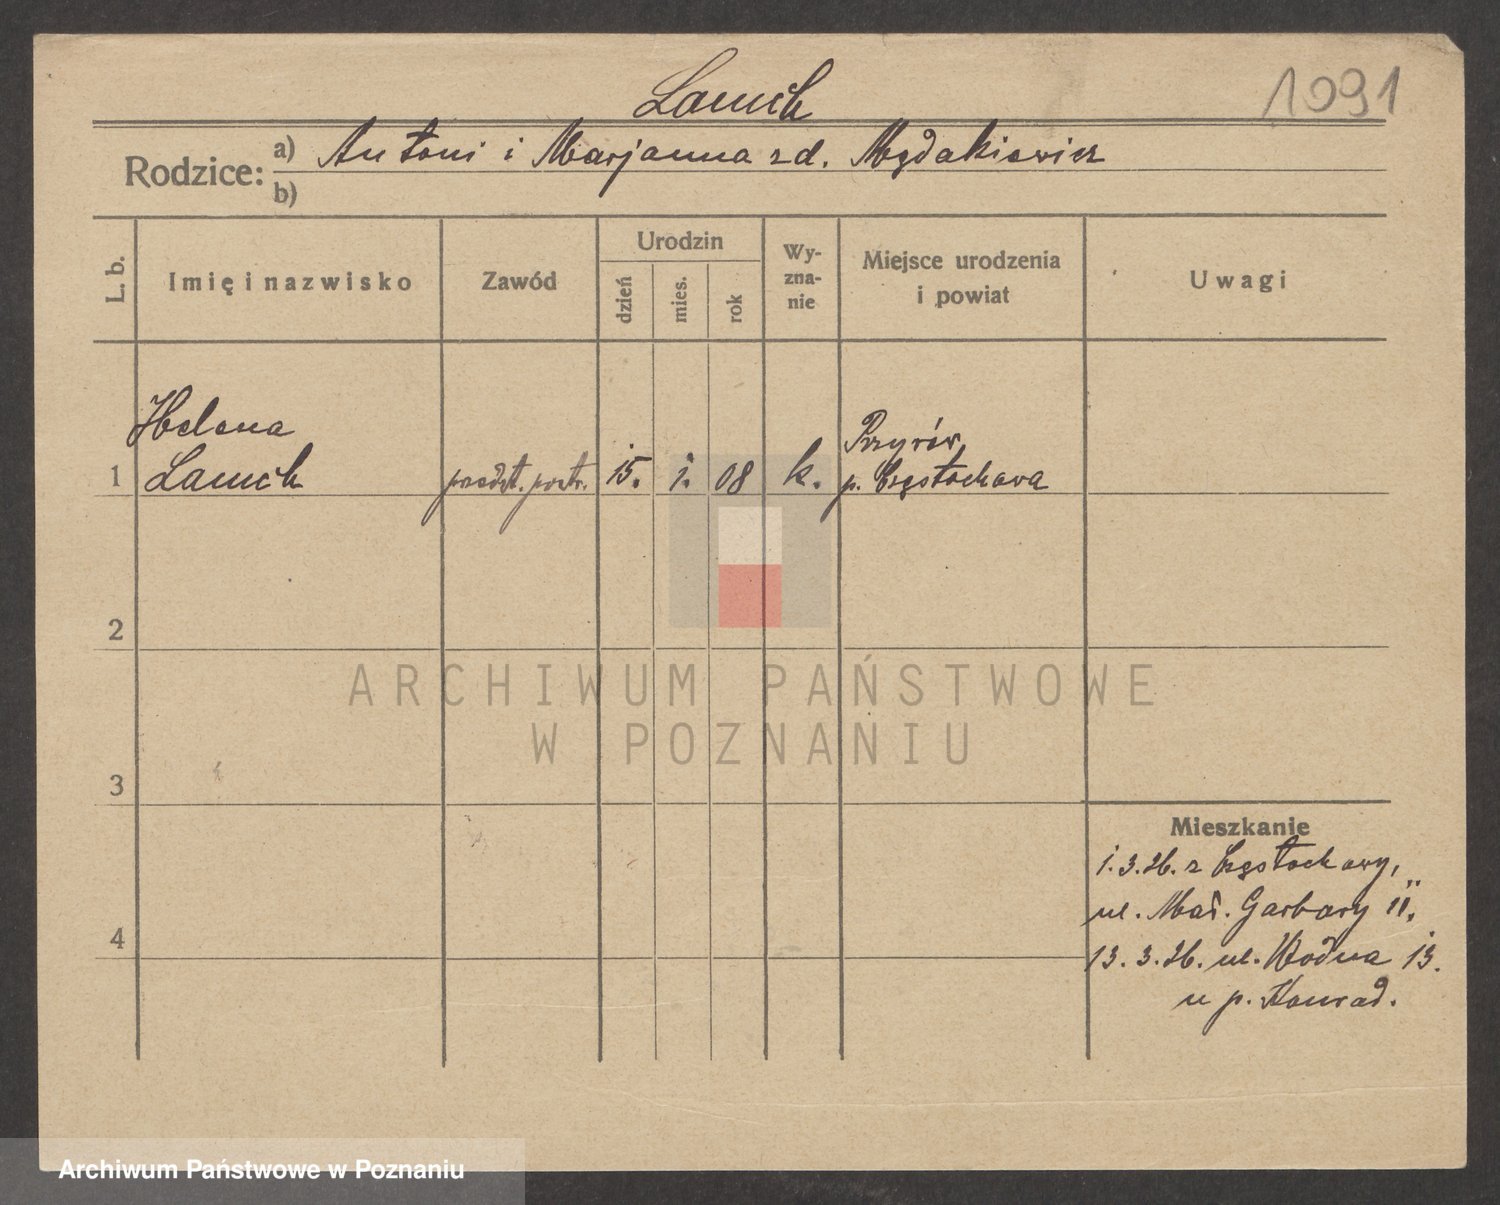 1091
Lamch
Rodzice: a) Antoni i Marjanna zd.
b)
L. b. Imię i nazwisko Zawód Urodzin dzień mies. rok Wyznanie Miejsce urodzenia i powiat Uwagi
Helena Przyrów,
1 Lamch 15. 1. 08 k. p. Częstochowa
2
ARCHIWUM PAŃSTWOWE
W POZNANIU
3
Mieszkanie
1.3.26. z Częstochowy,
ul. Mał. Garbary 11,
4
13.3.26. ul. Wodna 13.
u p. Konrad.
Archiwum Państwowe w Poznaniu